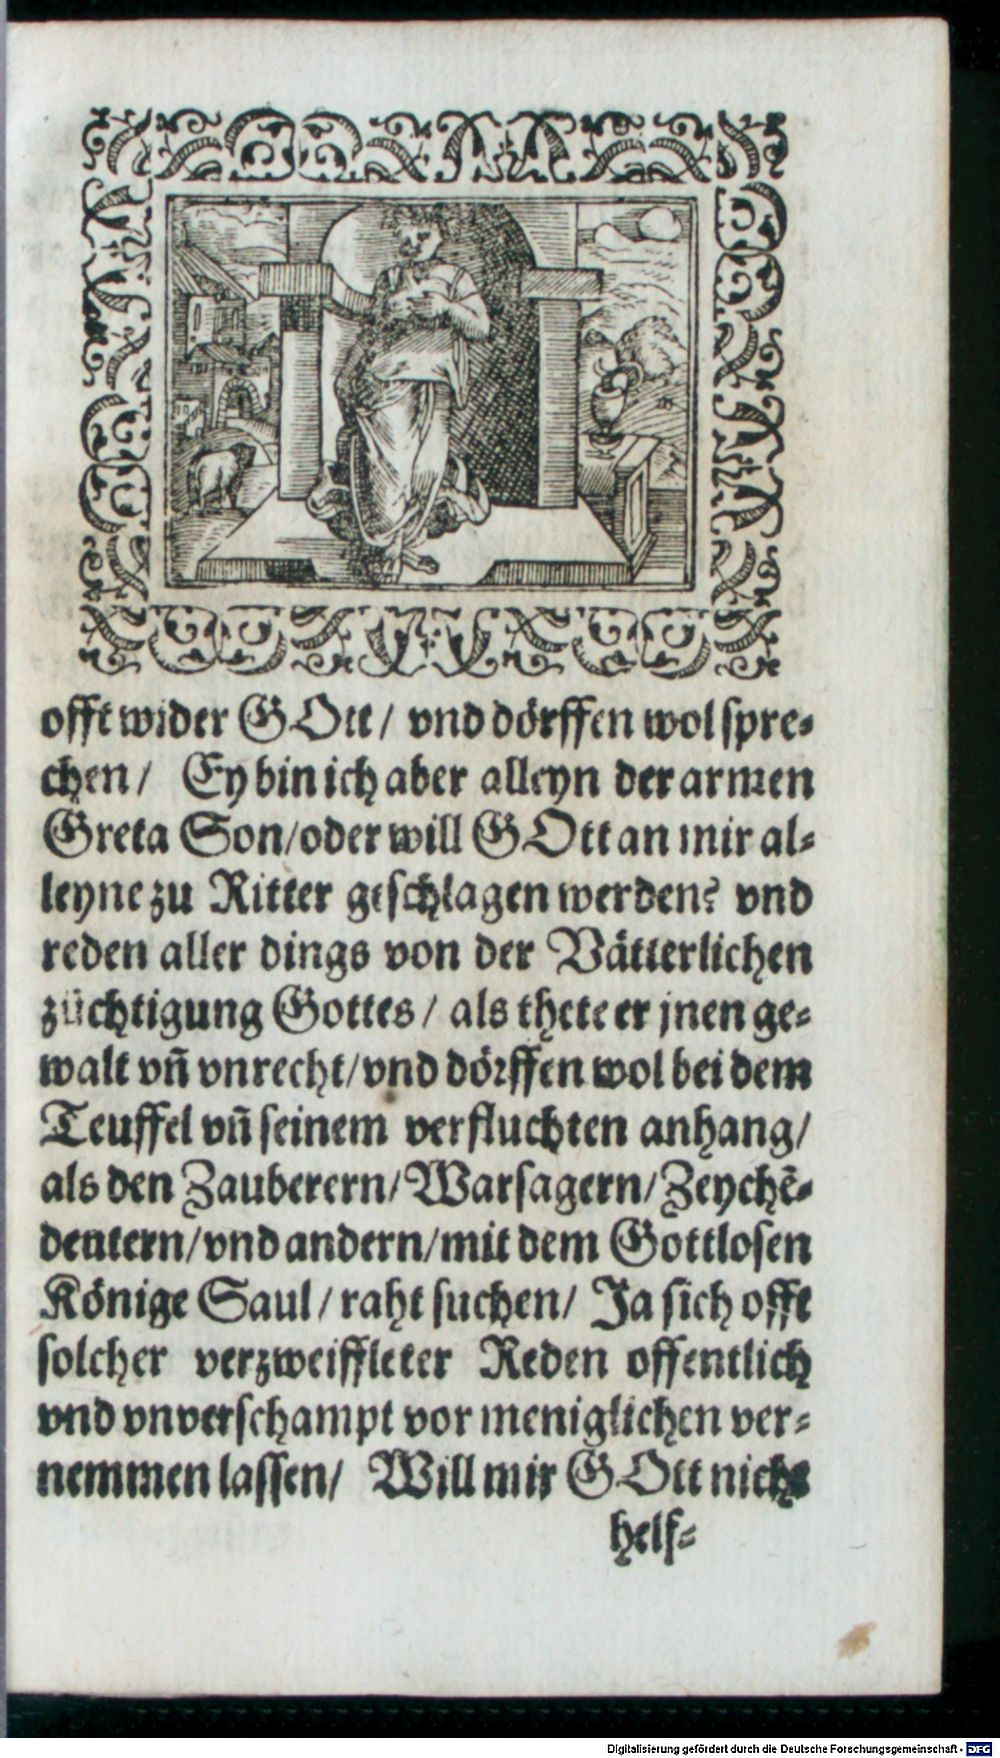 offt wider GOtt / vnd dörffen wol spre⸗
chen / Ey bin ich aber alleyn der armen
Greta Son / oder will GOtt an mir al⸗
leyne zu Ritter geschlagen werden? vnd
reden aller dings von der Vätterlichen
züchtigung Gottes / als thete er jnen ge⸗
walt vñ vnrecht / vnd dörffen wol bei dem
Teuffel vñ seinem verfluchten anhang /
als den Zauberern / Warsagern / Zeychẽ⸗
deutern / vnd andern / mit dem Gottlosen
Könige Saul / raht suchen / Ja sich offt
solcher verzweiffleter Reden offentlich
vnd vnverschampt vor meniglichen ver⸗
nemmen lassen / Will mir GOtt nicht
helf⸗
Digitalisierung gefördert durch die Deutsche Forschungsgemeinschaft - DFG